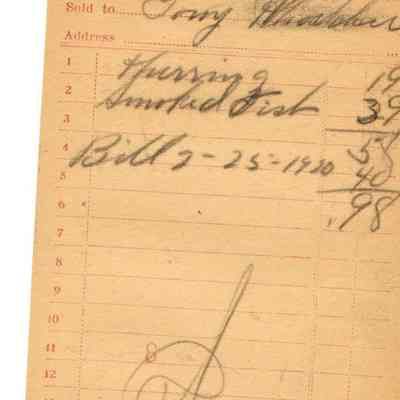 Sold to Tony
Address
1 Hurring 19
2 Smoked Fish 39
3 58
4 Bill 2-25-1920 40
5 .98
6
7
8
9
10
11 8
12